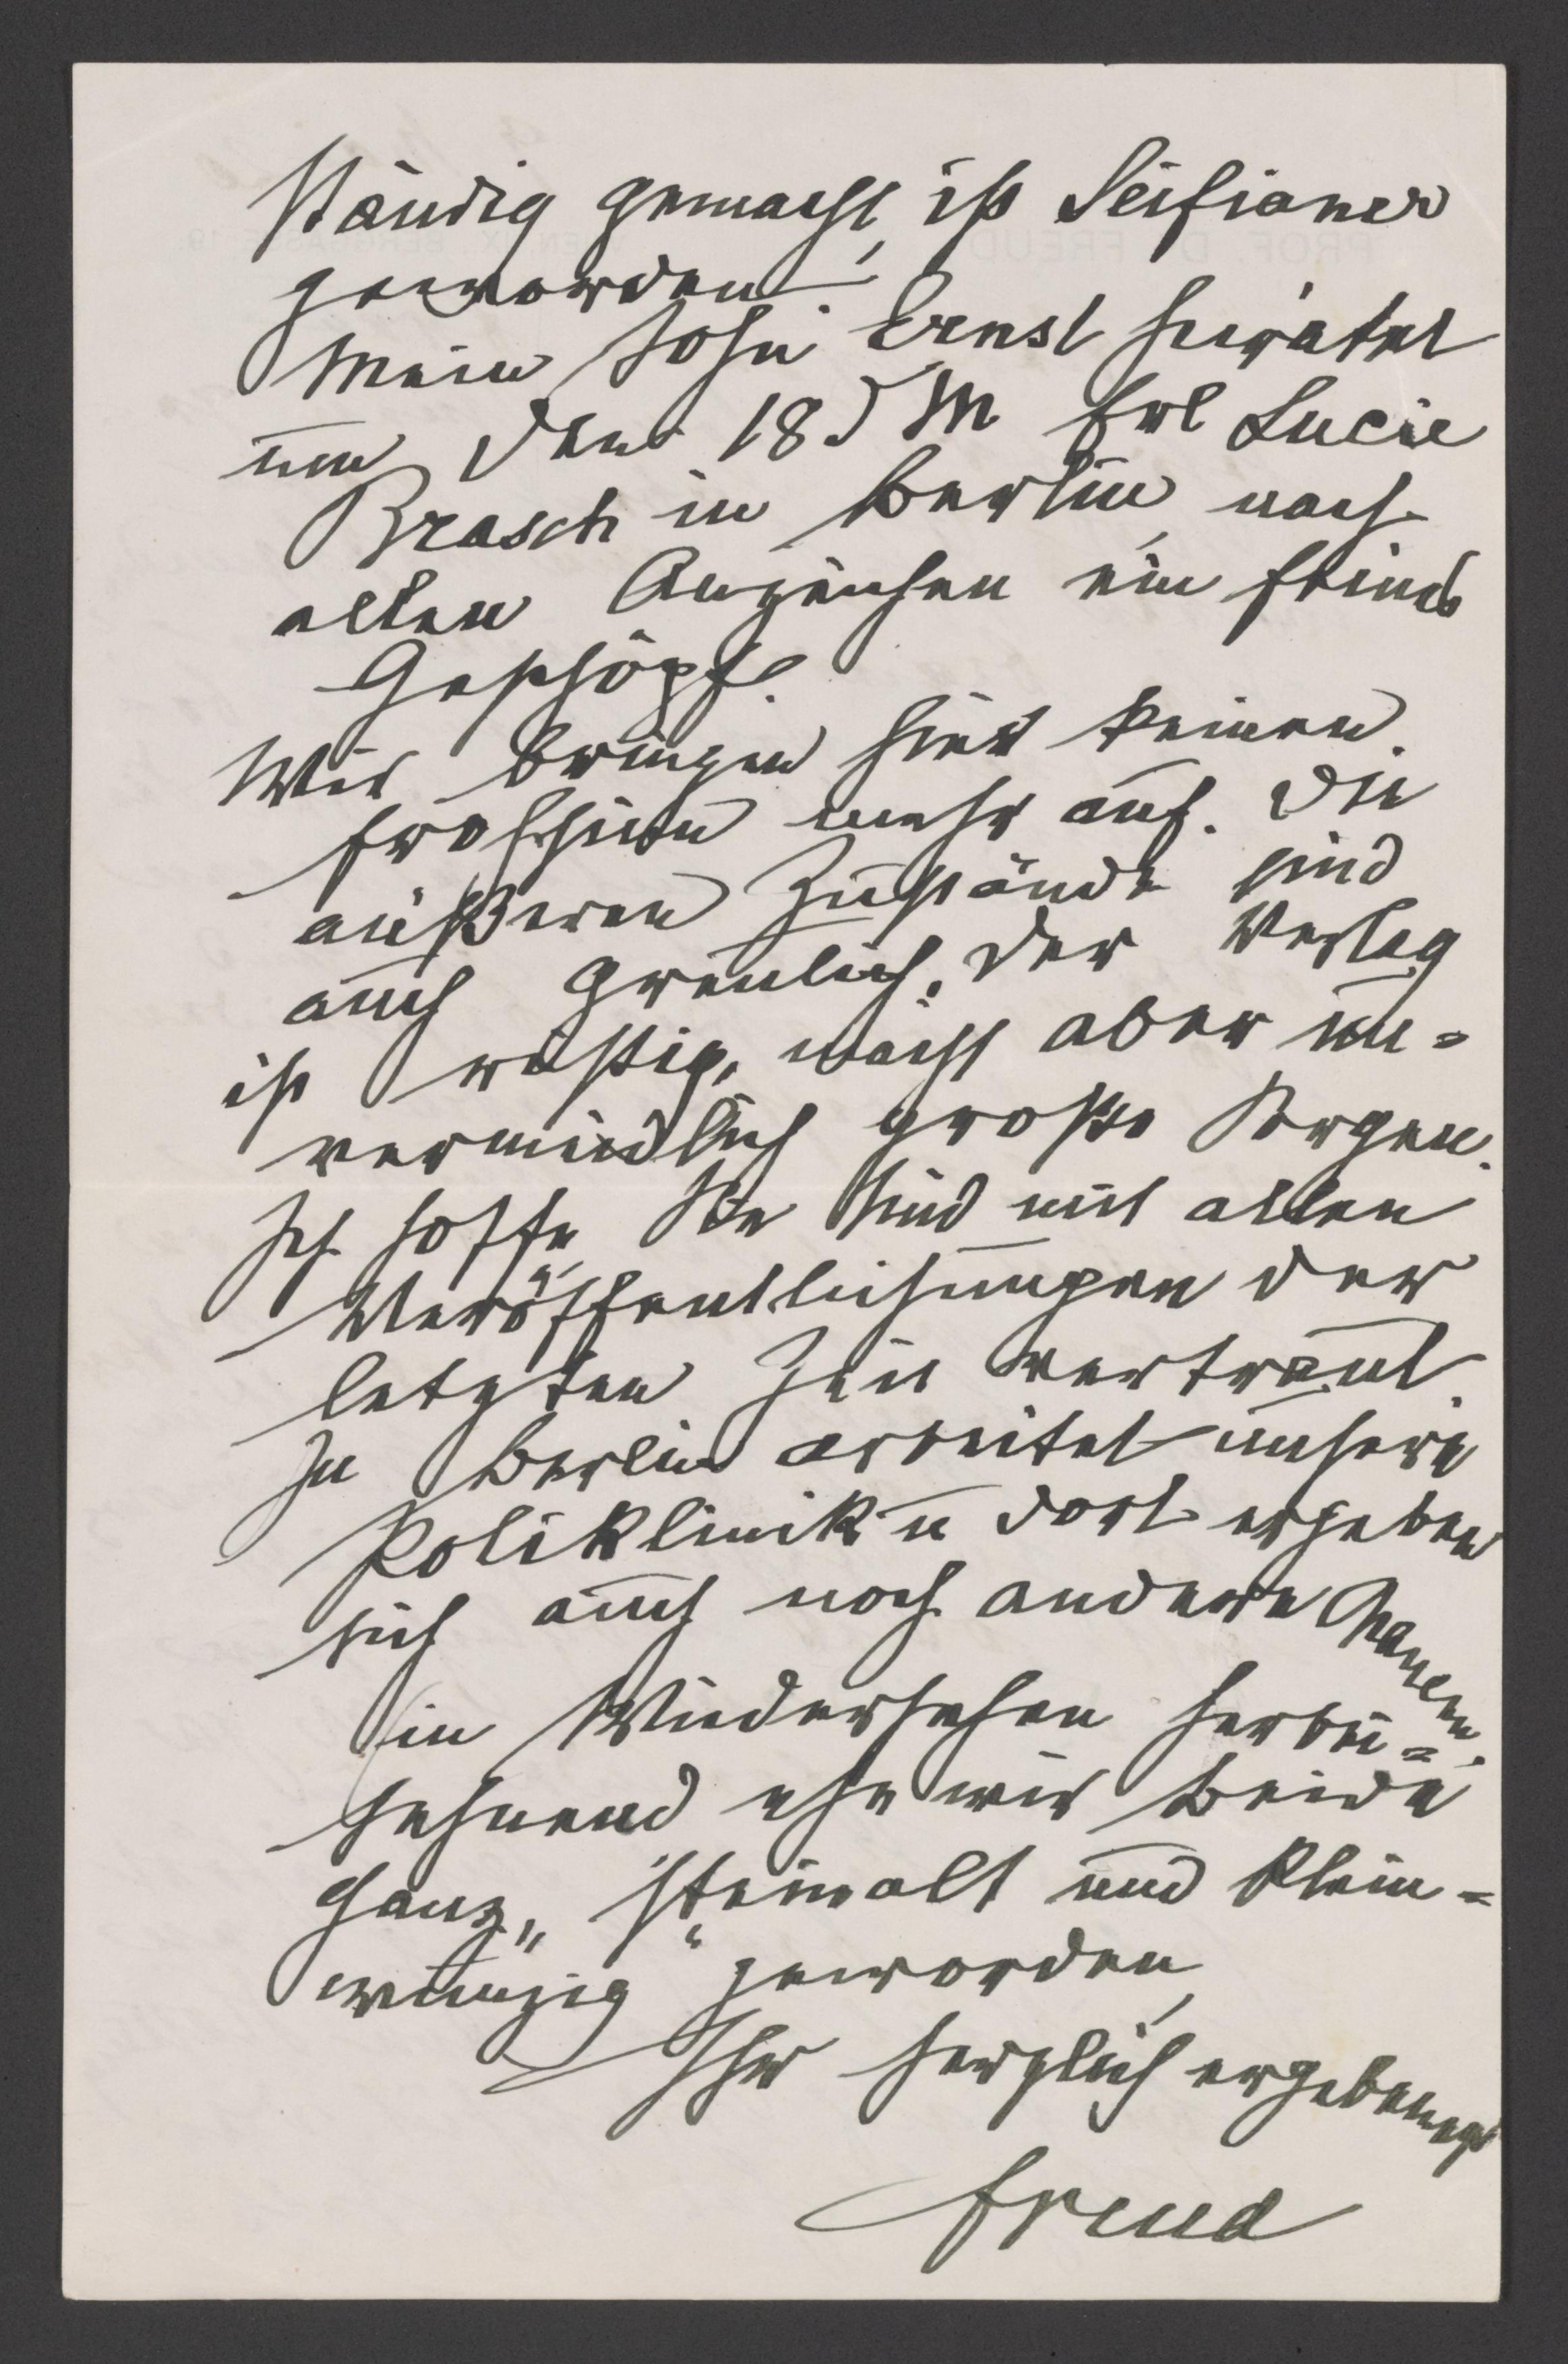 ständig gemacht, ist Seifianer
geworden.
Mein Sohn Ernst heiratet
um den 18 d M Frl Lucie
Brasch in Berlin, nach
allen Anzeichen ein feines
Geschöpf.
Wir bringen hier keinen
Frohsinn mehr auf. Die
äußeren Zustände sind
auch greulich. Der Verlag
ist rüstig, macht aber un=
vermeidlich große Sorgen.
Ich hoffe, Sie sind mit allen
Veröffentlichungen der
letzten Zeit vertraut.
In Berlin arbeitet unsere
Poliklinik u dort ergeben
sich auch noch andere Chancen.
Ein Wiedersehen herbei=
sehnend ehe wir beide
ganz „steinalt und klein=
winzig“ geworden,
Ihr herzlich ergebener
Freud
PROF. DR. FREUD
WIEN, IX. BERGGASSE 19